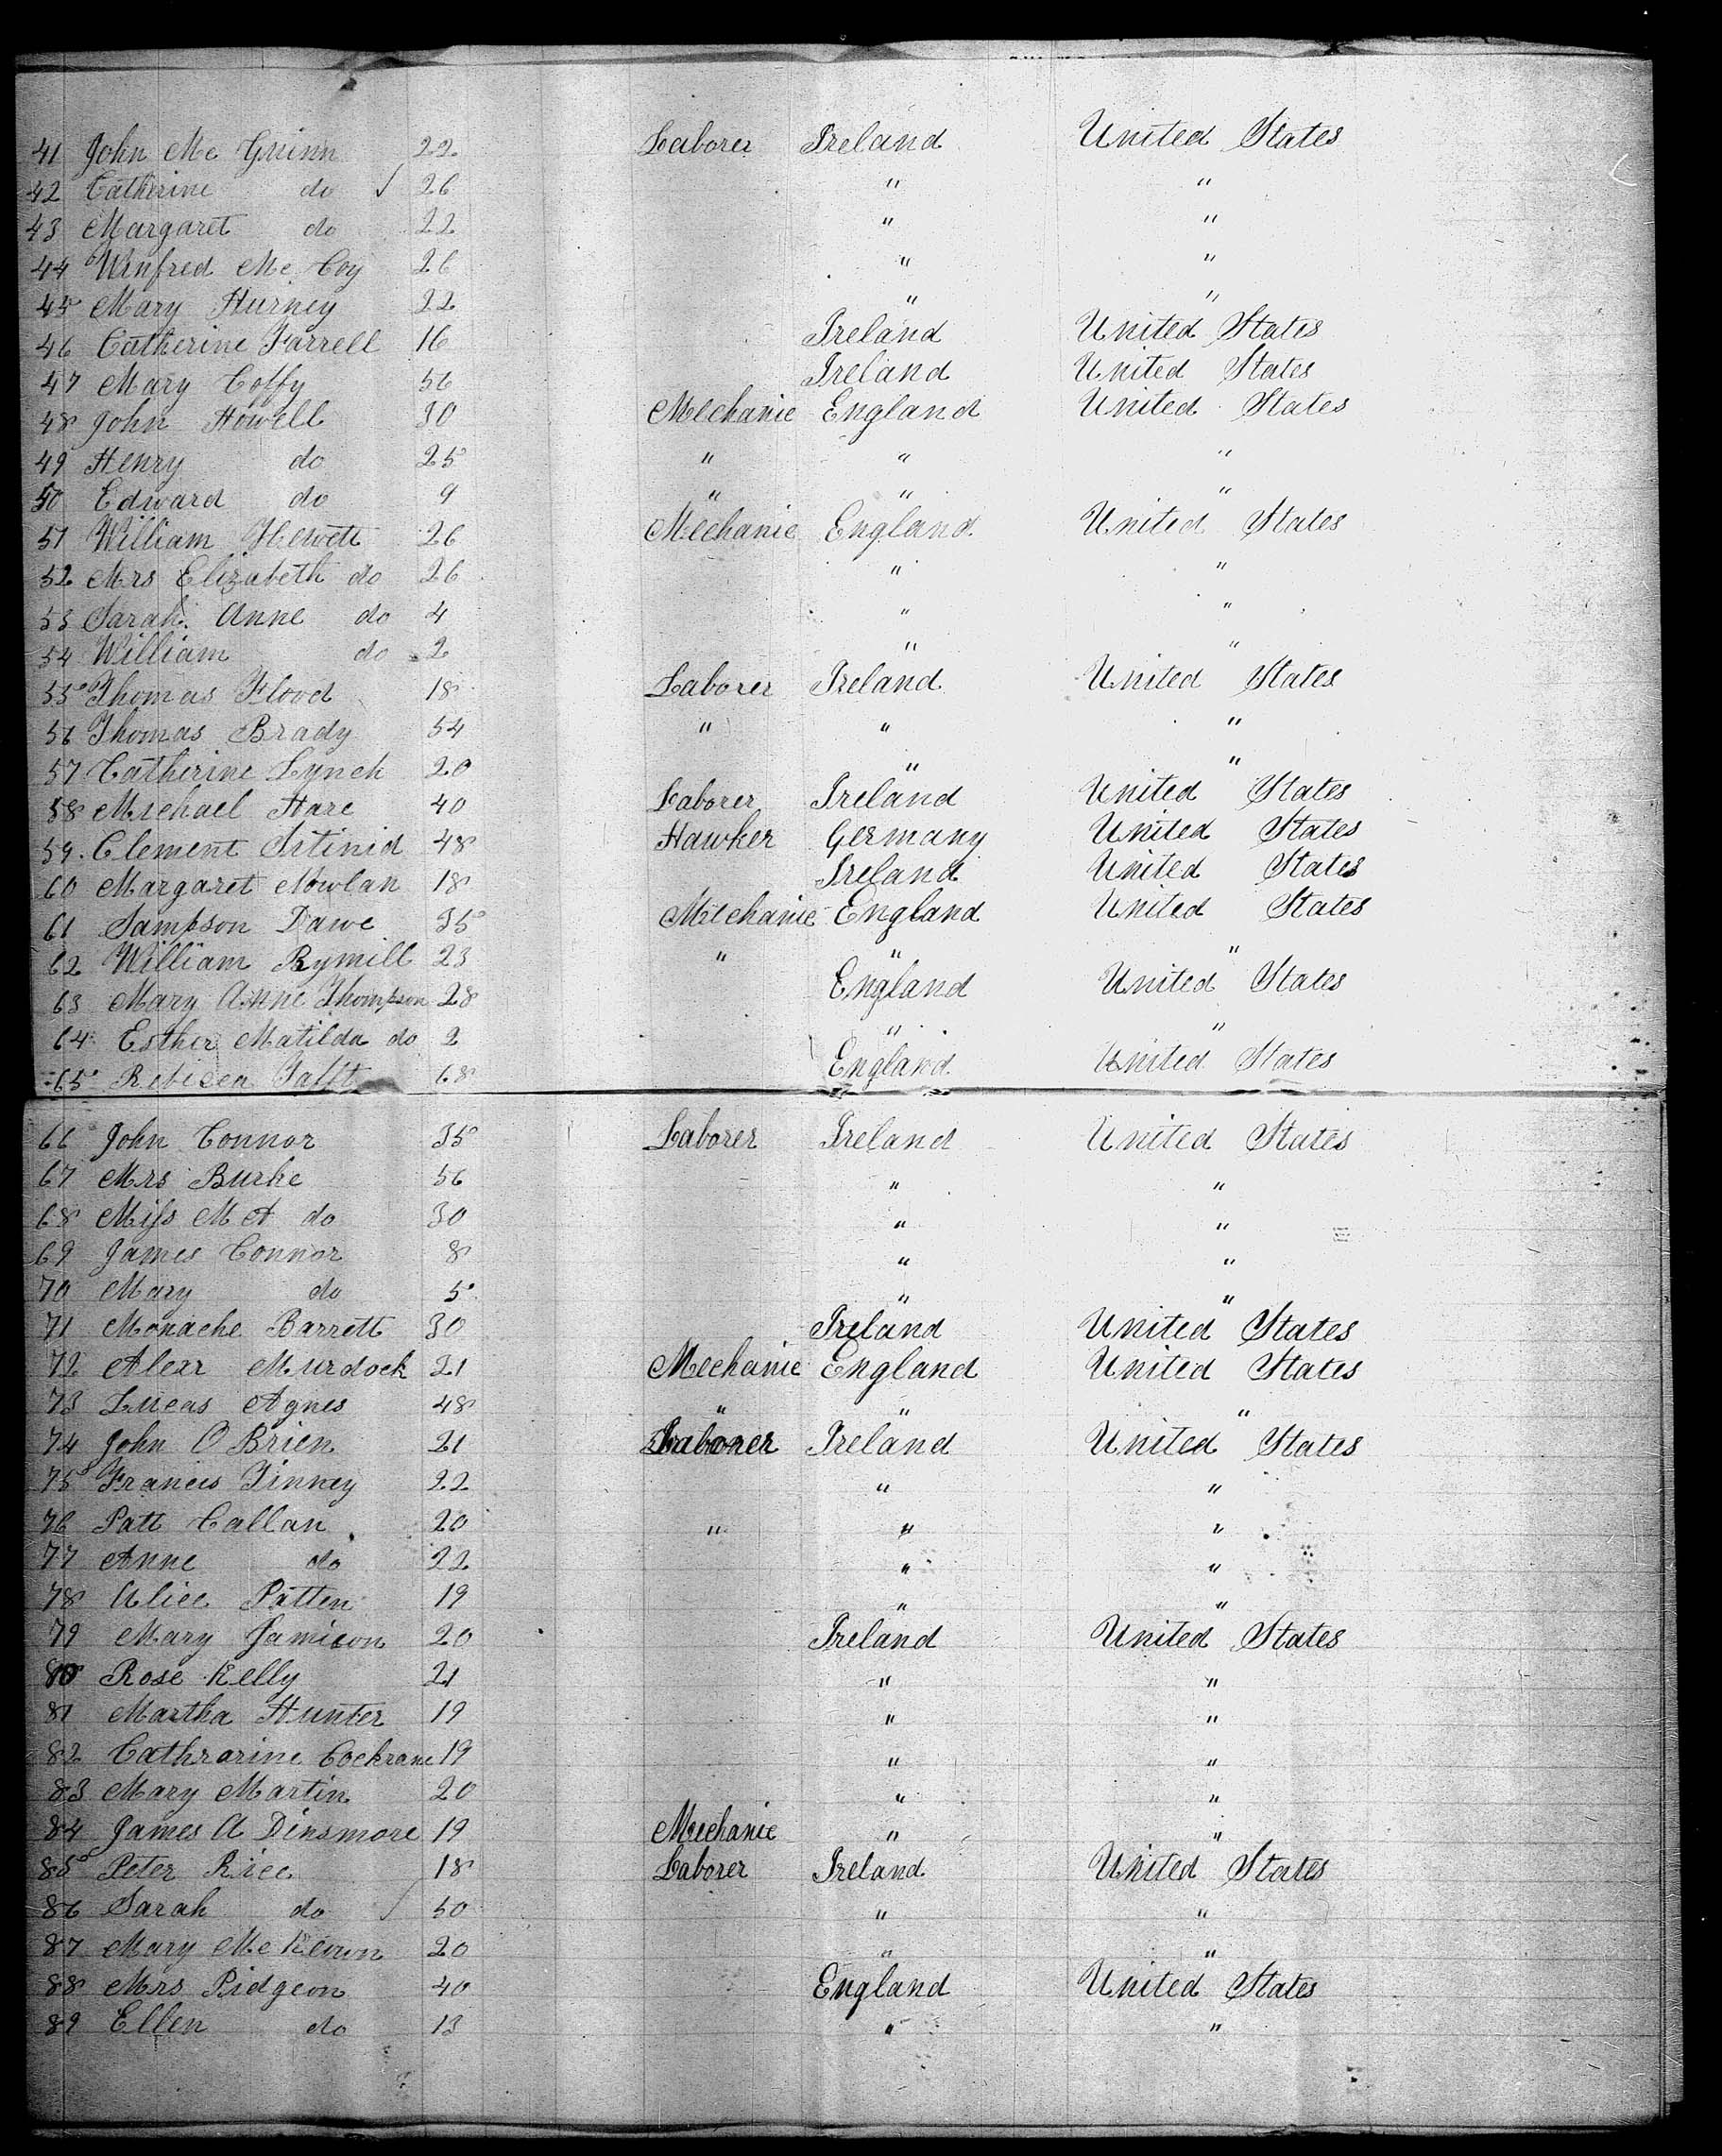 41 John Mc Guinn 22 Laborer Ireland United States
42 Catherine do ✓ 26 " "
43 Margaret do 22 " "
44 Winfred Mc Coy 26 " "
45 Mary Hurney 22 " "
46 Catherine Farrell 16 Ireland United States
47 Mary Coffy 56 Ireland United States
48 John Howell 30 Mechanic England United States
49 Henry do 25 " " "
50 Edward do 9 " " "
51 William Hewett 26 Mechanic England United States
52 Mrs Elizabeth do 26 " "
53 Sarah Anne do 4 " "
54 William do 2 " "
55 Thomas Flood 18 Laborer Ireland United States
56 Thomas Brady 54 " " "
57 Catherine Lynch 20 " "
58 Michael Hare 40 Laborer Ireland United States
59 Clement 48 Hawker Germany United States
60 Margaret Nowlan 18 Ireland United States
61 Sampson Dawe 35 Mechanic England United States
62 William Rymill 23 " " "
63 Mary Anne Thompson 28 England United States
64 Esther Matilda do 2 " "
65 Rebicca 68 England United States
66 John Connor 35 Laborer Ireland United States
67 Mrs Burke 56 " "
68 Miss M A do 30 " "
69 James Connor 8 " "
70 Mary do 5 " "
71 Monache Barrett 30 Ireland United States
72 Alexr Murdock 21 Mechanic England United States
73 Lucas Agnes 48 " " "
74 John O Brien 21 Laborer Ireland United States
75 Francis Finney 22 " "
76 Patt Callan 20 " " "
77 Anne do 22 " "
78 Alice Patten 19 " "
79 Mary Jamison 20 Ireland United States
80 Rose Kelly 21 " "
81 Martha Hunter 19 " "
82 Cathrarine Cockrane 19 " "
83 Mary Martin 20 " "
84 James A Dinsmore 19 Mechanic " "
85 Peter Rice 18 Laborer Ireland United States
86 Sarah do ✓ 50 " "
87 Mary Mc Keown 20 " "
88 Mrs Pidgeon 40 England United States
89 Ellen do 13 " "